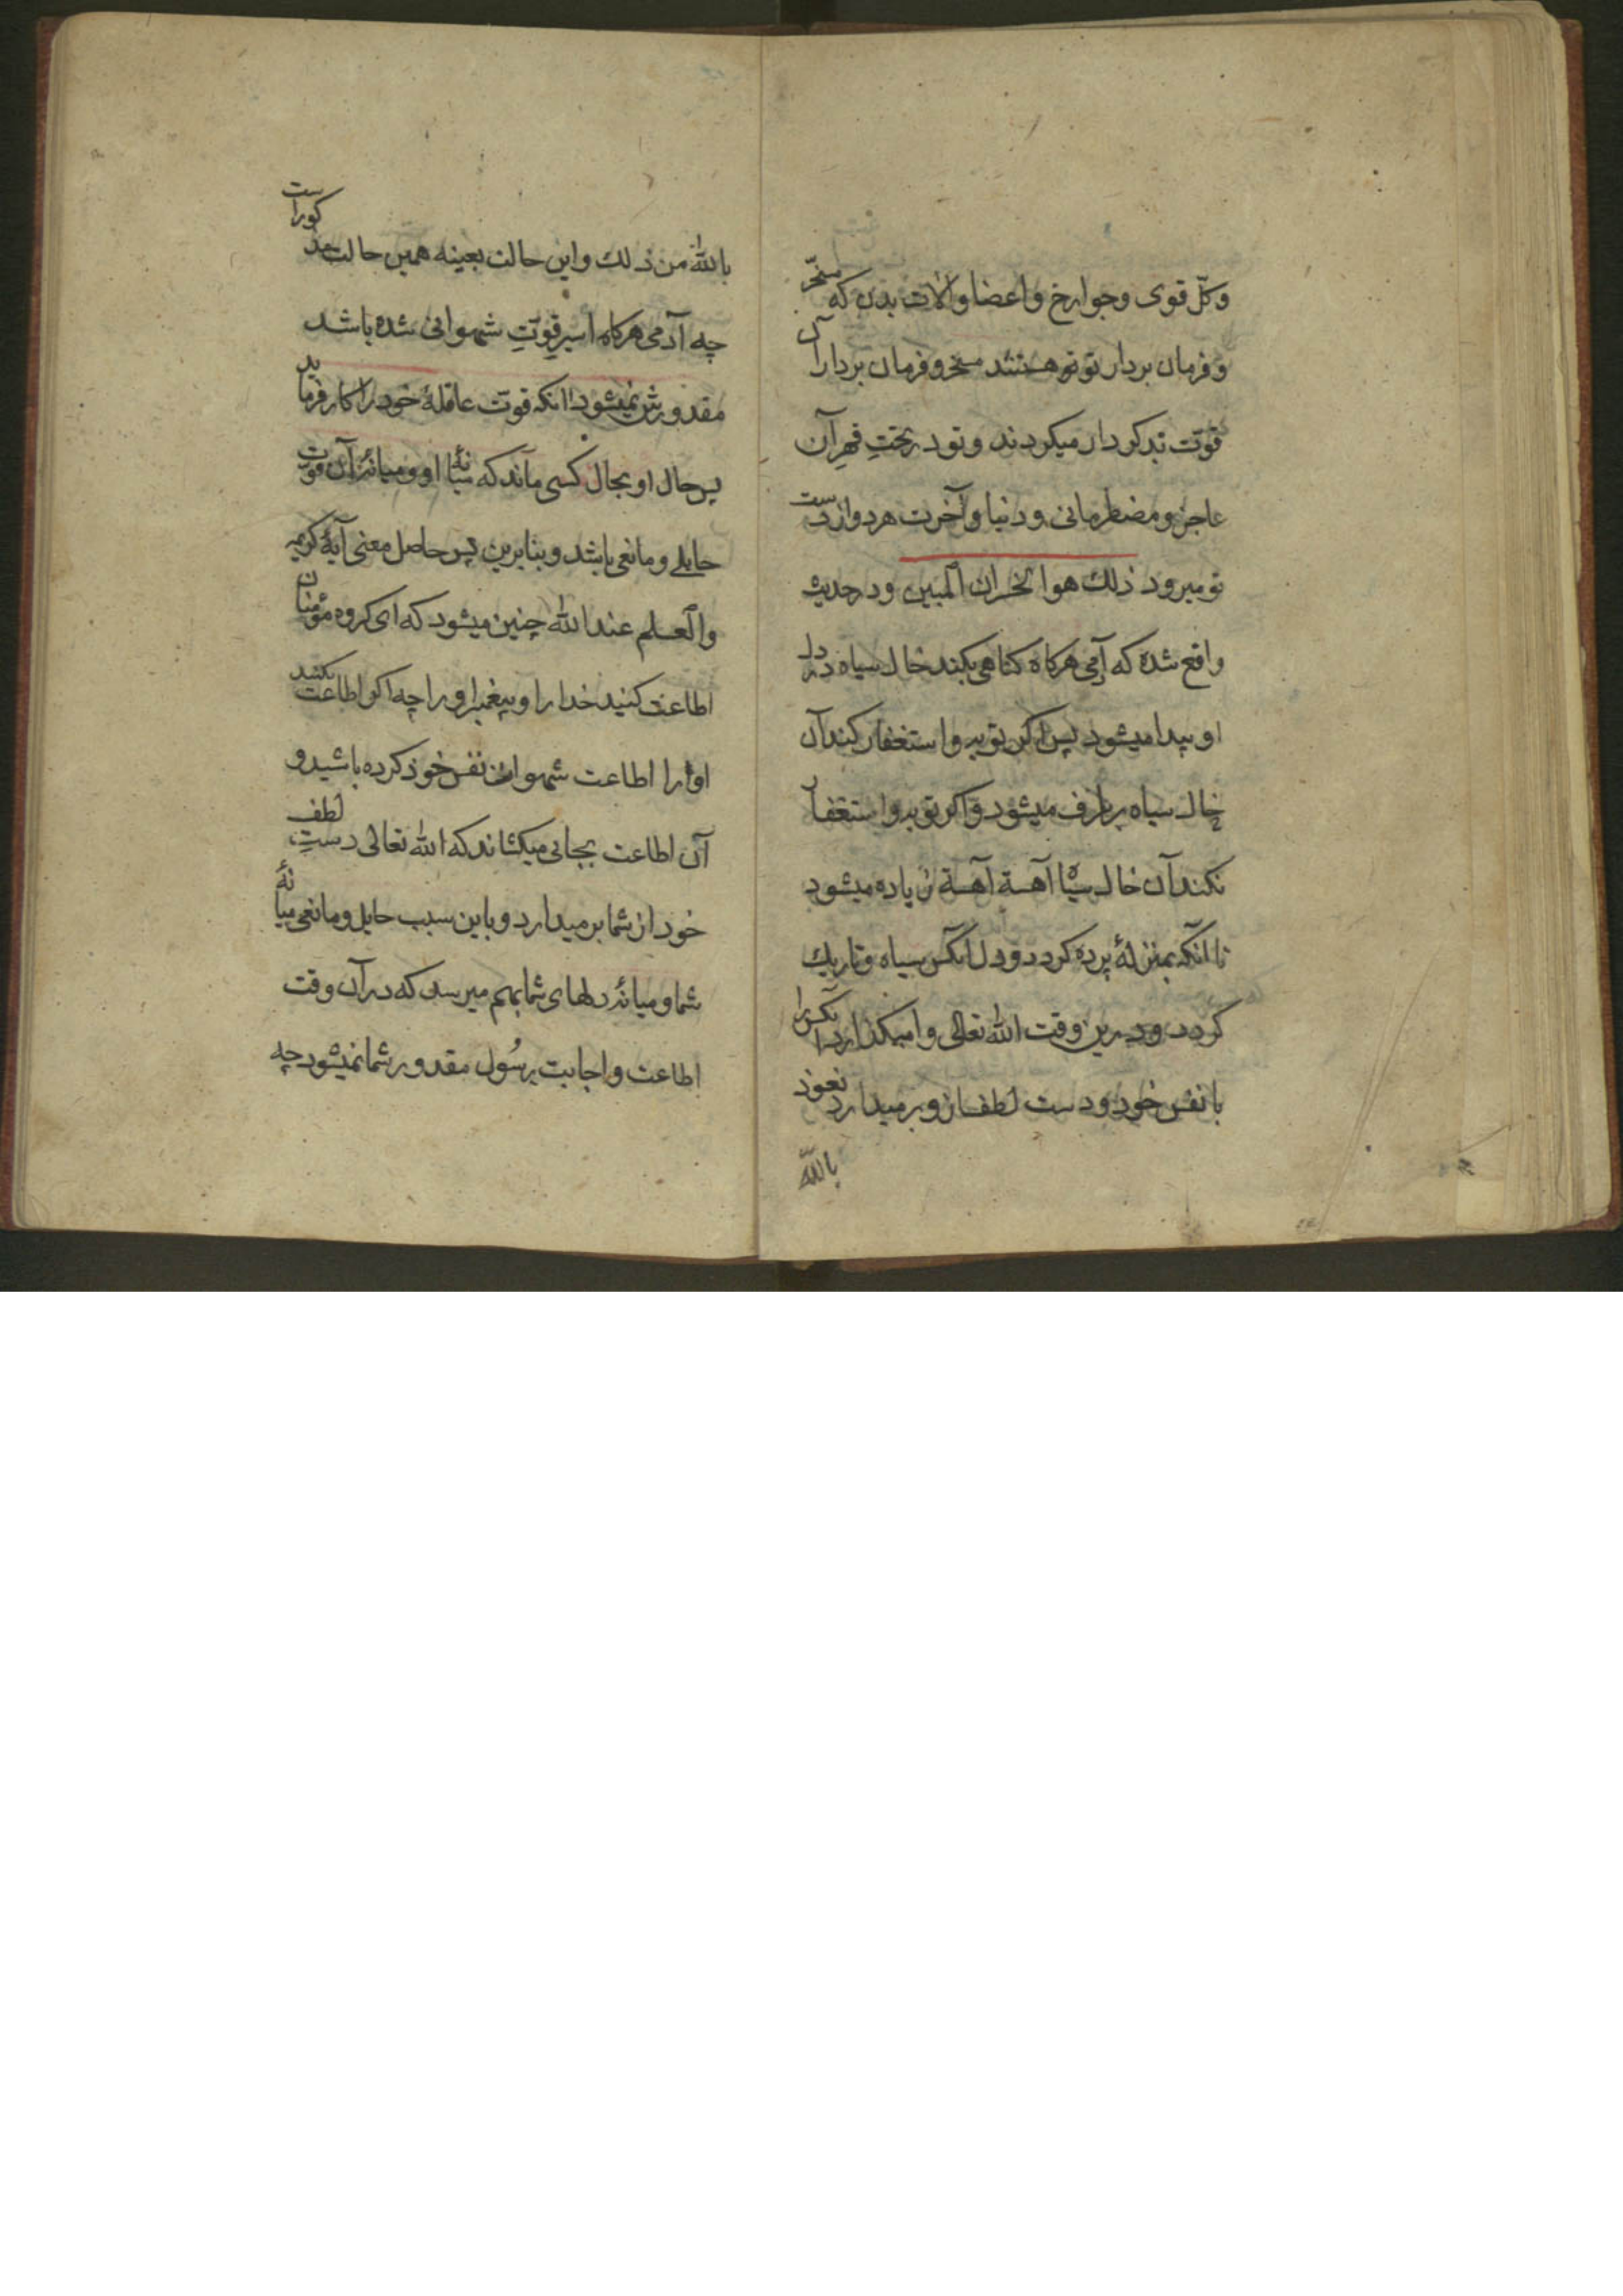 وکلّ قوی وجوارح واعضا والات بدن که مسخّر
وفرمان بردار تو توهستند مسخر وفرمان بردار آن
قوّت بدکردار میکردند وتو در تحتِ قهرِ آن
عاجز ومضطر مانی ودنیا وآخرت هردو از دست
تو میرود ذلك هو الخسران المبین ودر حدیث
واقع شده که آدمی هرکاه کناهی بکند خال سیاه در دل
او پیدا میشود پس اکر توبه واستغفار کند آن
خال سیاه برطرف میشود واکر توبه واستغفار
نکند آن خال سیاه آهسته آهسته زیاده میشود
تا آنکه بمنزلهٔ پرده کردد ودل آنکس سیاه وتاریك
کردد ودرین وقت الله تعالی وامیکذارد آنکس را
بانفس خود ودست لطف ازو برمیدارد نعوذ
بالله
بالله من ذلك واین حالت بعینه همین حالت مذکور است
چه آدمی هرکاه اسیر قوّتِ شهوانی شده باشد
مقدورش نمیشود آنکه قوّت عاقلهٔ خود را کار فرماید
پس حال او بحال کسی ماند که میانهٔ او ومیانهٔ آن قوت
حایلی ومانعی باشد وبنابرین پس حاصل معنی آیهٔ کریمه
والعلم عند الله چنین میشود که ای کروه مؤمنان
اطاعت کنید خدا را وپیغمبر او را چه اکر اطاعت نکنید
او را اطاعت شهوات نفس خود کرده باشید و
آن اطاعت بجائی میکشاند که الله تعالی دستِ لطف
خود از شما برمیدارد وباین سبب حایل ومانعی میانهٔ
شما ومیانهٔ دلهای شما بهم میرسد که در آن وقت
اطاعت واجابت رسُول مقدور شما نمیشود چه